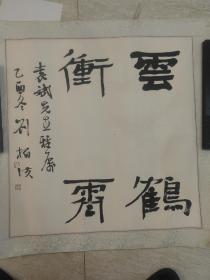 雲鶴
衝霄
袁斌先生雅屬
乙酉冬 劉柏